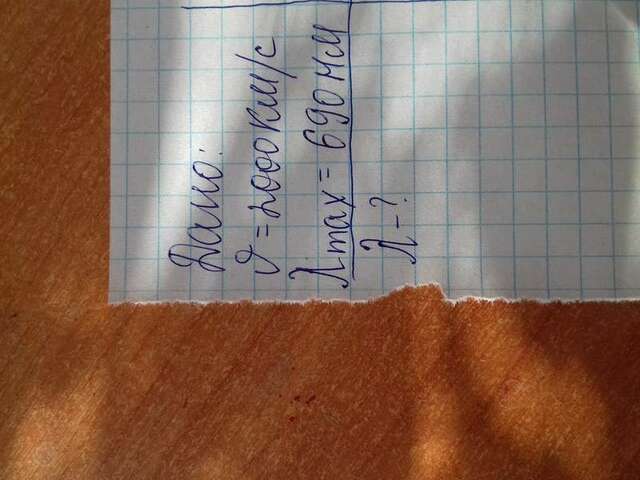 Дано:
υ = 2000 км/с
λmax = 690 нм
λ - ?